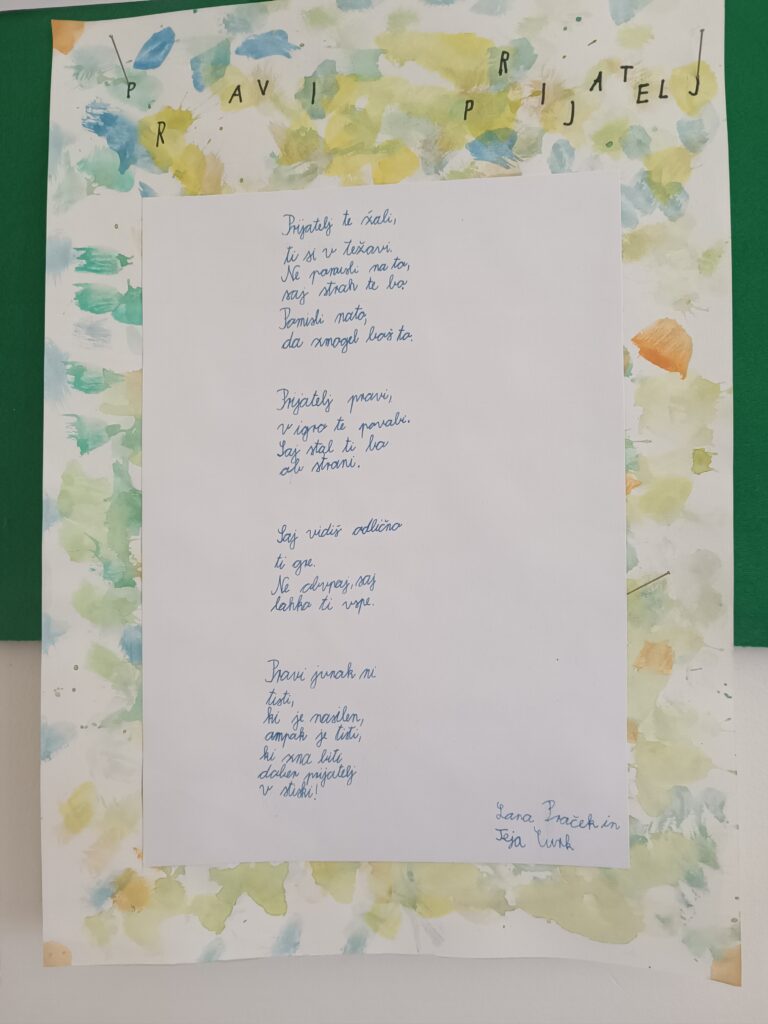 PRAVI PRIJATELJ
Prijatelj te žali,
ti si v težavi.
Ne pomisli na to,
saj strah te bo
Pomisli nato,
da zmogel boš to.
Prijatelj pravi,
v igro te povabi.
Saj stal ti bo
ob strani.
Saj vidiš odlično
ti gre.
Ne obupaj, saj
lahko ti uspe.
Pravi junak ni
tisti,
ki je nasilen,
ampak je tisti,
ki zna biti
dober prijatelj
v stiski!
Lana Praček in
Teja Turk